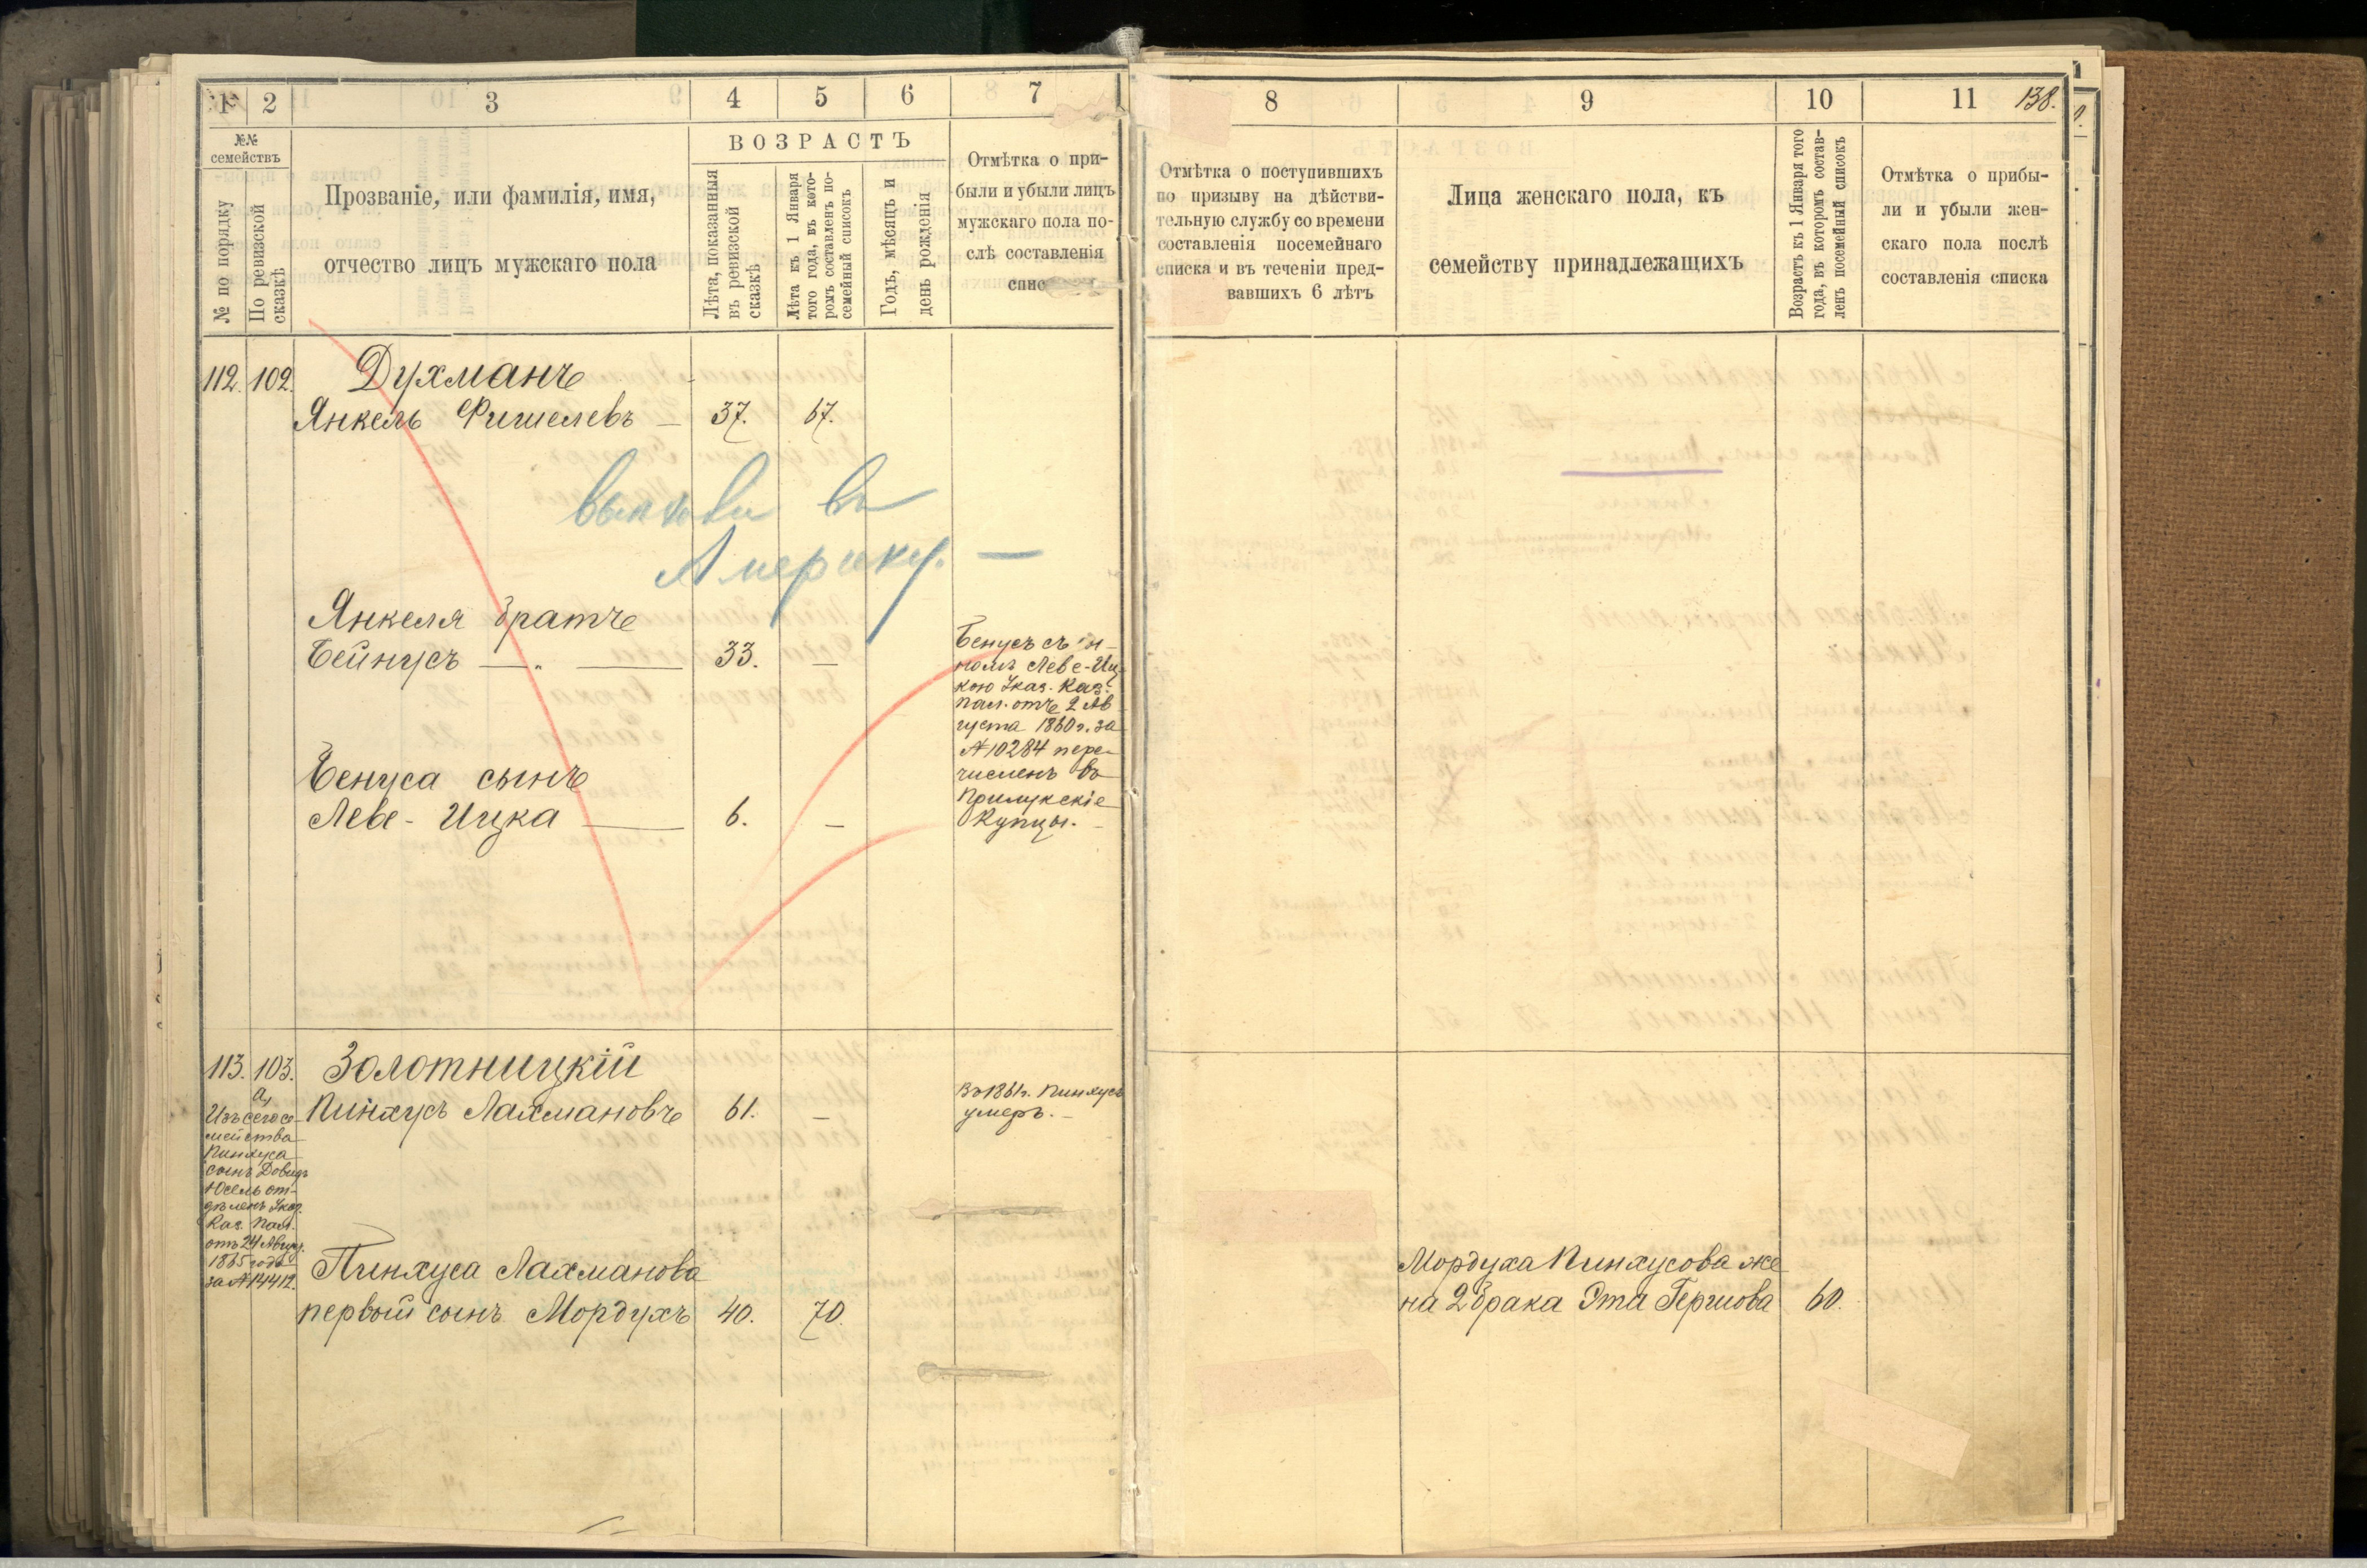 1 2 3 4 5 6 7
№№ семействъ
№ по порядку
По ревизской сказкѣ
Прозваніе, или фамилія, имя,
отчество лицъ мужскаго пола
ВОЗРАСТЪ
Лѣта, показанныя
въ ревизской
сказкѣ
Лѣта къ 1 Января
того года, въ кото-
ромъ составленъ по-
семейный списокъ
Годъ, мѣсяцъ и
день рожденія
Отмѣтка о при-
были и убыли лицъ
мужскаго пола по-
слѣ составленія
спис
112. 102. Духманъ
Янкель Фишелевъ — 37. 67.
въ
Америку. —
Янкеля братъ
Бейнусъ — „ — 33. —
Бенуса сынъ
Лебе-Ицка — 6. —
Бенусъ съ
Лебе-Иц
кою Указ. Каз.
Пал. отъ 2 Ав
густа 1860 г. за
№ 10284 пере-
численъ въ
Прилукскіе
Купцы. —
113. 103. Золотницкій
а,
Пинхусъ Лахмановъ 61. —
Въ 1861 г. Пинхусъ
умеръ. —
Изъ сего се-
мейства
Пинхуса
сынъ Довидъ
Юсель от-
дѣленъ Указ.
Каз. Пал.
отъ 24 Авгус.
1865 года
за № 14412.
Пинхуса Лахманова
первый сынъ Мордухъ 40. 70.
8 9 10 11 138.
Отмѣтка о поступившихъ
по призыву на дѣйстви-
тельную службу со времени
составленія посемейнаго
списка и въ теченіи пред-
вавшихъ 6 лѣтъ
Лица женскаго пола, къ
семейству принадлежащихъ
Возрастъ къ 1 Января того
года, въ которомъ состав-
ленъ посемейный списокъ
Отмѣтка о прибы-
ли и убыли жен-
скаго пола послѣ
составленія списка
Мордуха Пинхусова же
на 2 брака Эта Гершова 60.